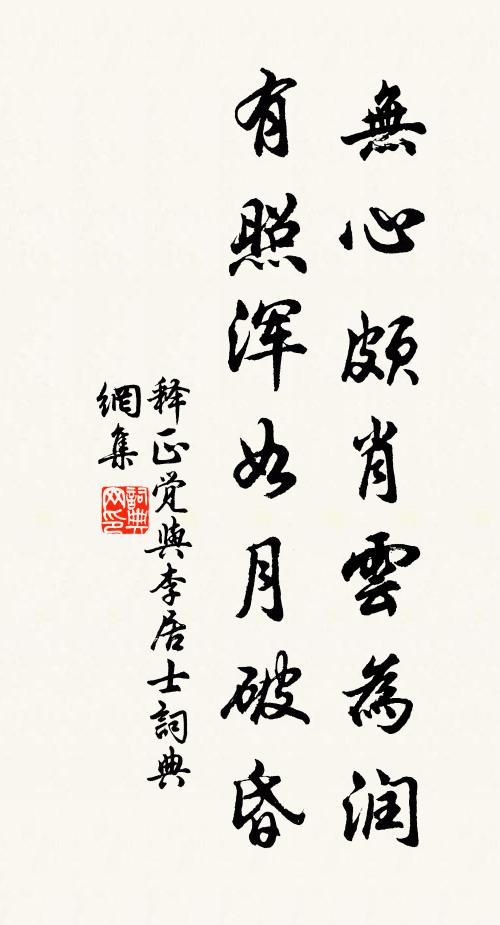 無心頗肖雲為润
有照浑如月破昏
释正觉與李居士詞典
網集
詞典网印